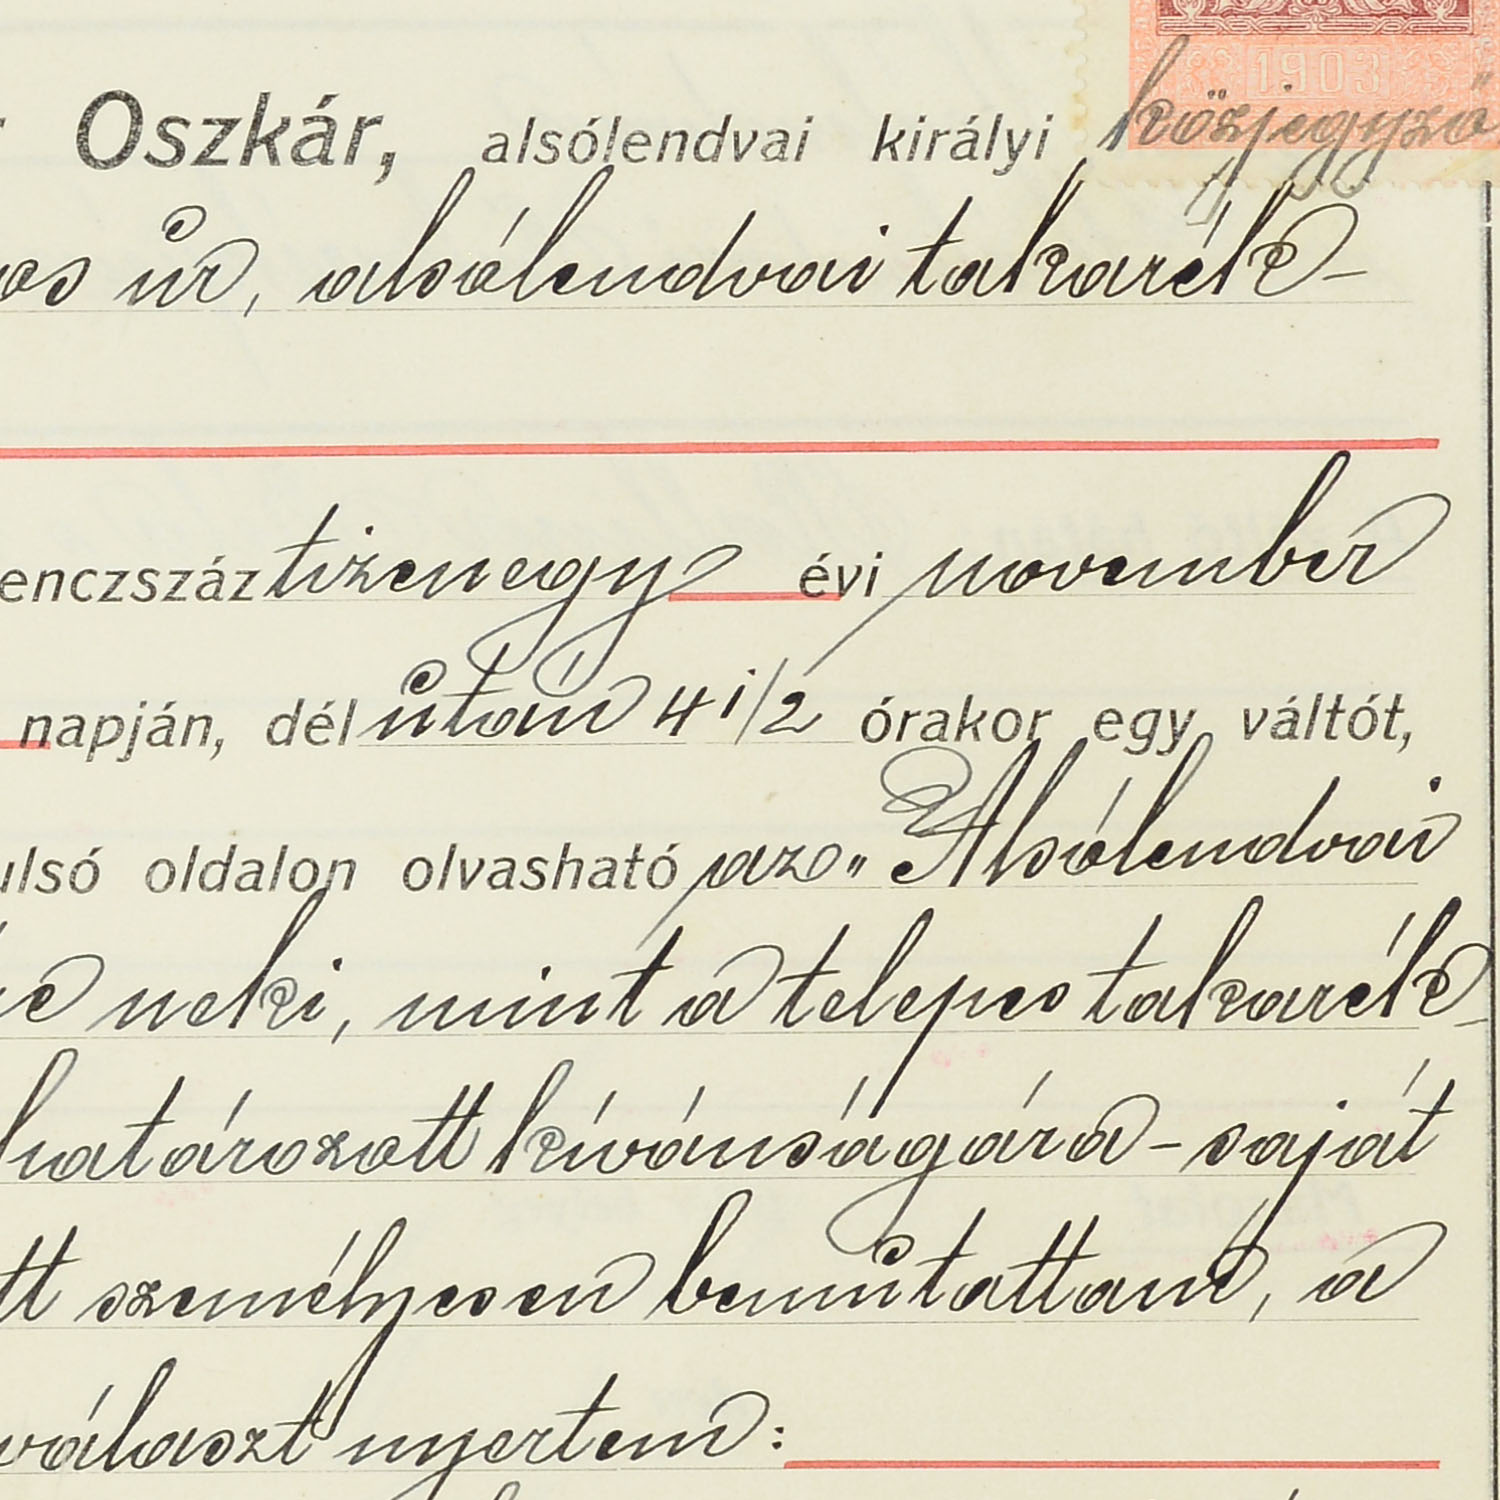 1903
Oszkár, alsólendvai királyi közjegyző
úr, alsólendvai takarék-
enczszáz tizenegy évi november
napján, dél után 4 1/2 órakor egy váltót,
ulsó oldalon olvasható az „Alsólendvai
neki, mint a telepes takarék-
határozott kívánságára - saját
tt személyesen bemutattam, a
választ nyertem: